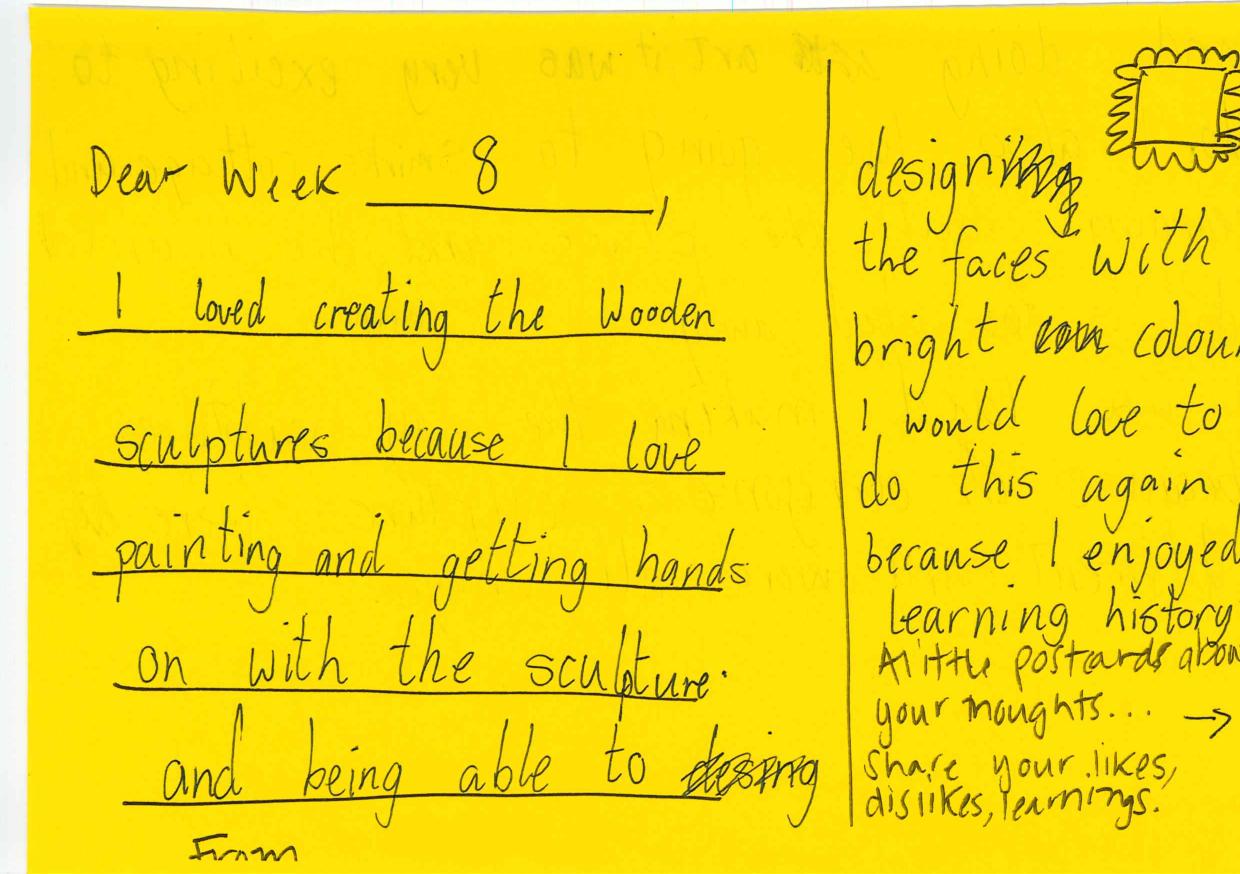 Dear Week 8,
I loved creating the Wooden
sculptures because I love
painting and getting hands
on with the sculpture.
and being able to
From
design
the faces with
bright colour
I would love to
do this again
because I enjoyed
learning history
A little postcards abou
your thoughts... →
Share your likes,
dislikes, learnings.